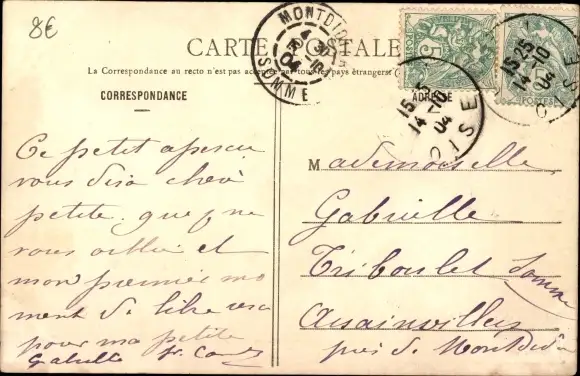 8€
CARTE POSTALE
La Correspondance au recto n'est pas acceptée par tous les pays étrangers
CORRESPONDANCE
ADRESSE
MONTDIDIER
SOMME
15 25
14 -10
04
OISE
15 25
14 -10
04
OISE
5
POSTES
Ce petit aperçu
vous dira chère
petite que je ne
vous oublie et
mon premier mo
ment de libre sera
pour ma petite
Gabrielle
Mademoiselle
Gabrielle
Triboulet
Assainvillers Somme
près de Montdidier